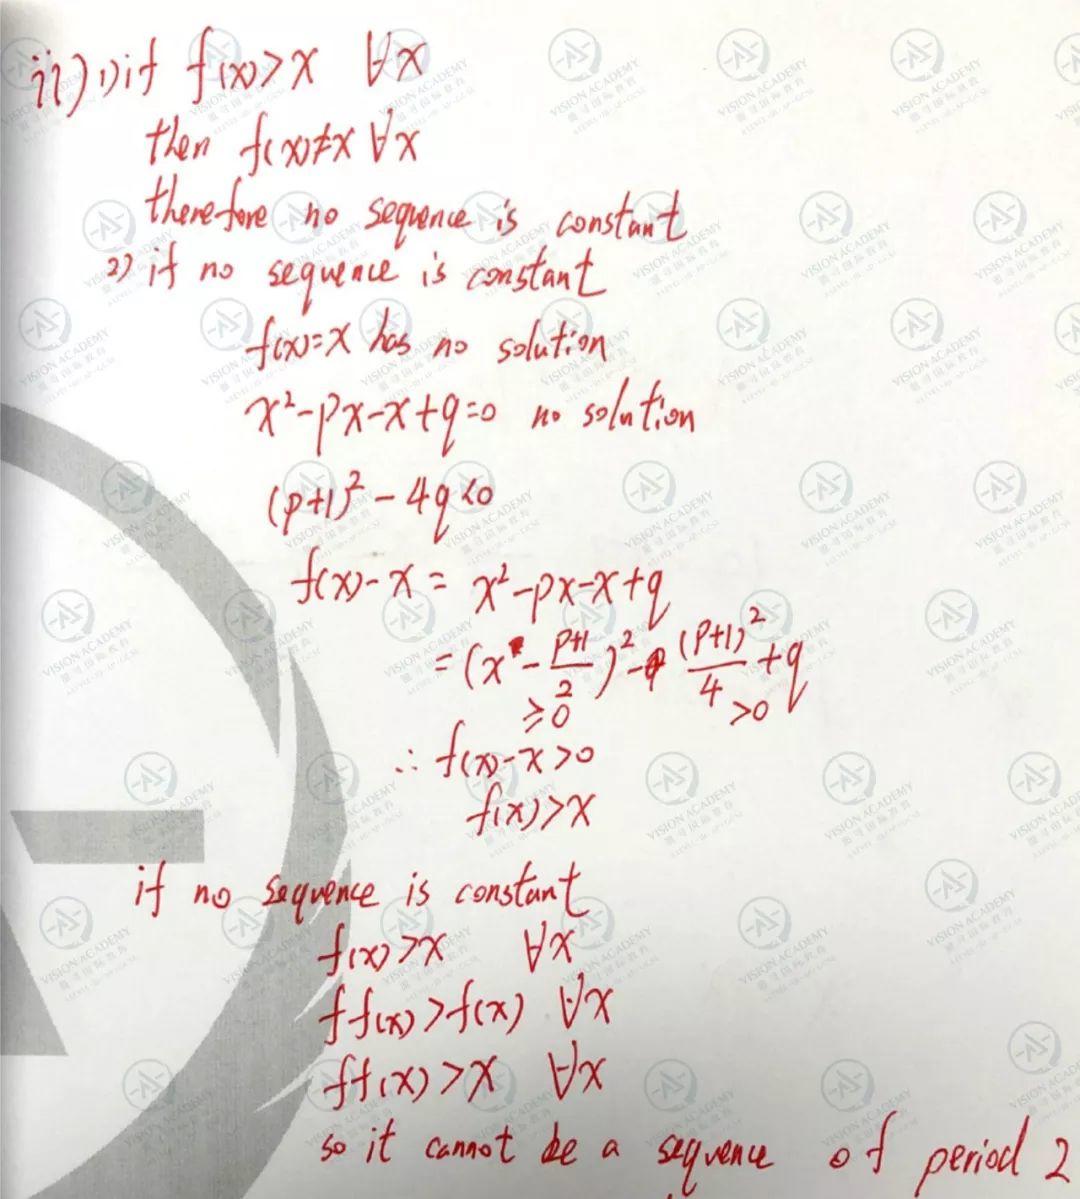 ii) 1) if f(x)>x ∀x
then f(x)≠x ∀x
therefore no sequence is constant
2) if no sequence is constant
f(x)=x has no solution
x²-px-x+q=0 no solution
(p+1)²-4q<0
f(x)-x = x²-px-x+q
= (x - (p+1)/2)² - (p+1)²/4 + q
≥0 >0
∴ f(x)-x>0
f(x)>x
if no sequence is constant
f(x)>x ∀x
ff(x)>f(x) ∀x
ff(x)>x ∀x
so it cannot be a sequence of period 2
VISION ACADEMY